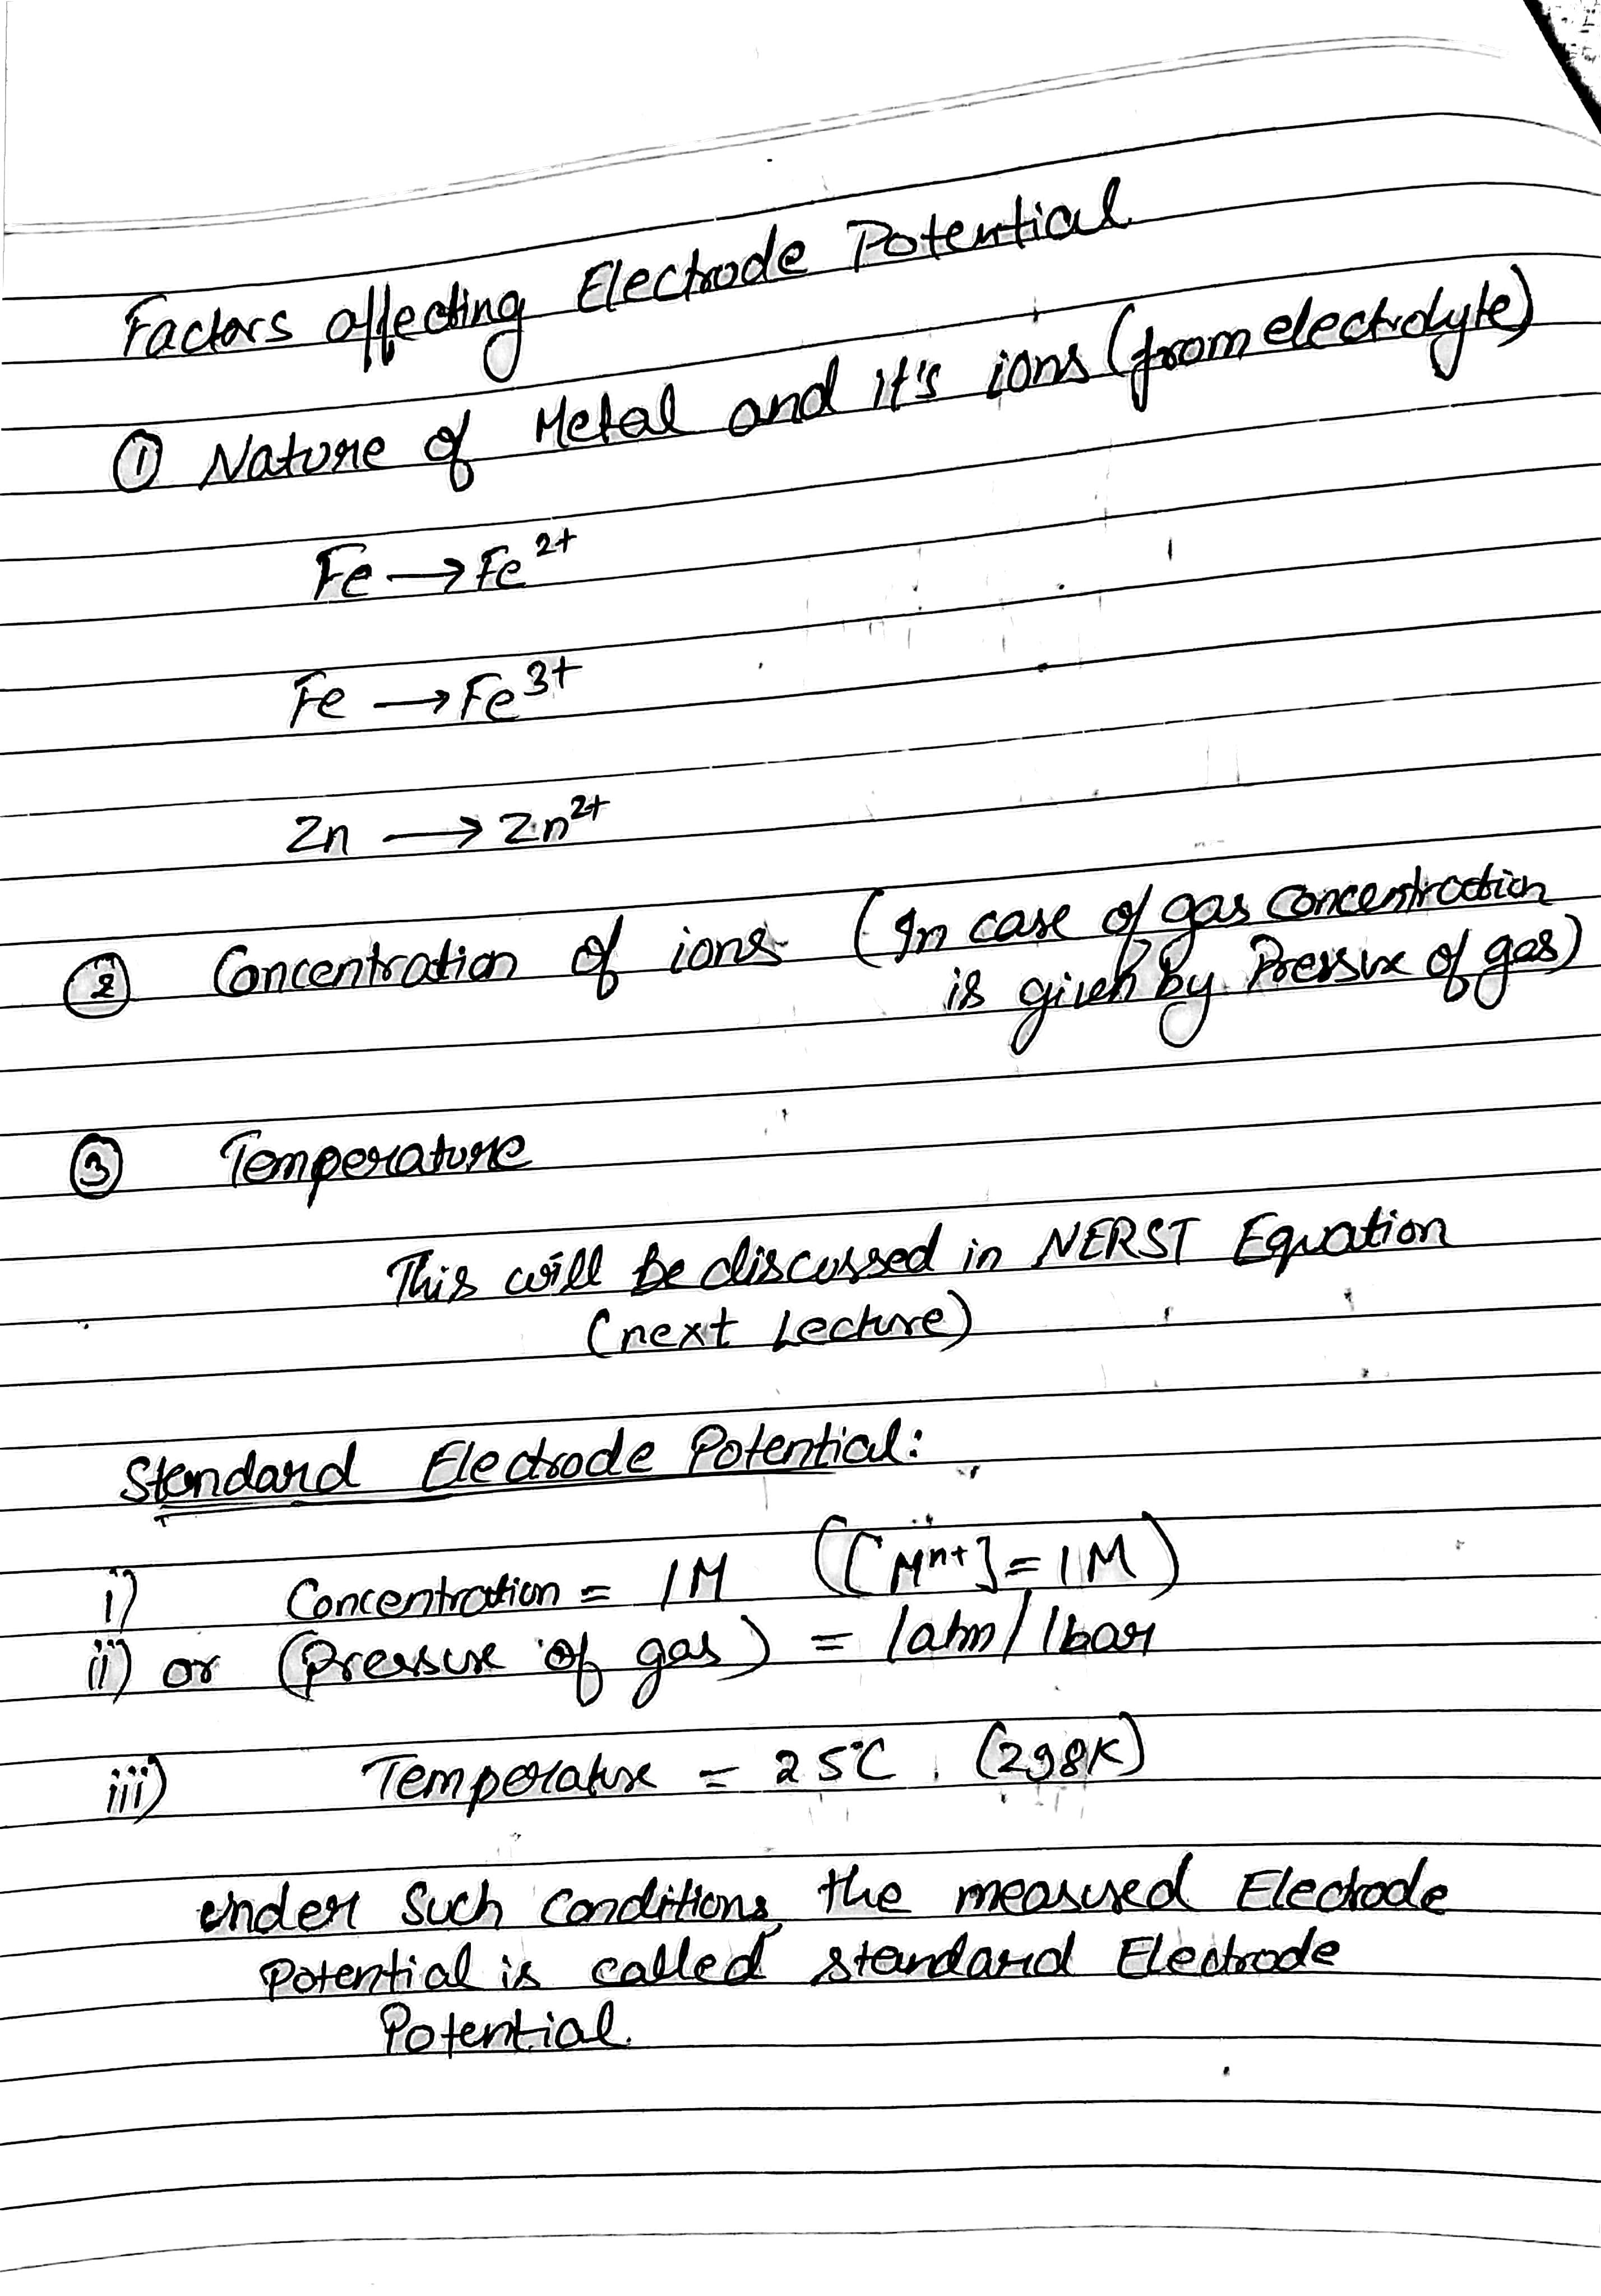 Factors affecting Electrode Potential
① Nature of Metal and it's ions (from electrolyte)
Fe → Fe²⁺
Fe → Fe³⁺
Zn → Zn²⁺
② Concentration of ions (In case of gas concentration
is given by Pressure of gas)
③ Temperature
This will be discussed in NERST Equation
(next Lecture)
Standard Electrode Potential:
i) Concentration = 1M ([Mⁿ⁺] = 1M)
ii) or (Pressure of gas) = 1atm/1bar
iii) Temperature = 25°C. (298K)
under Such Conditions, the measured Electrode
Potential is called standard Electrode
Potential.